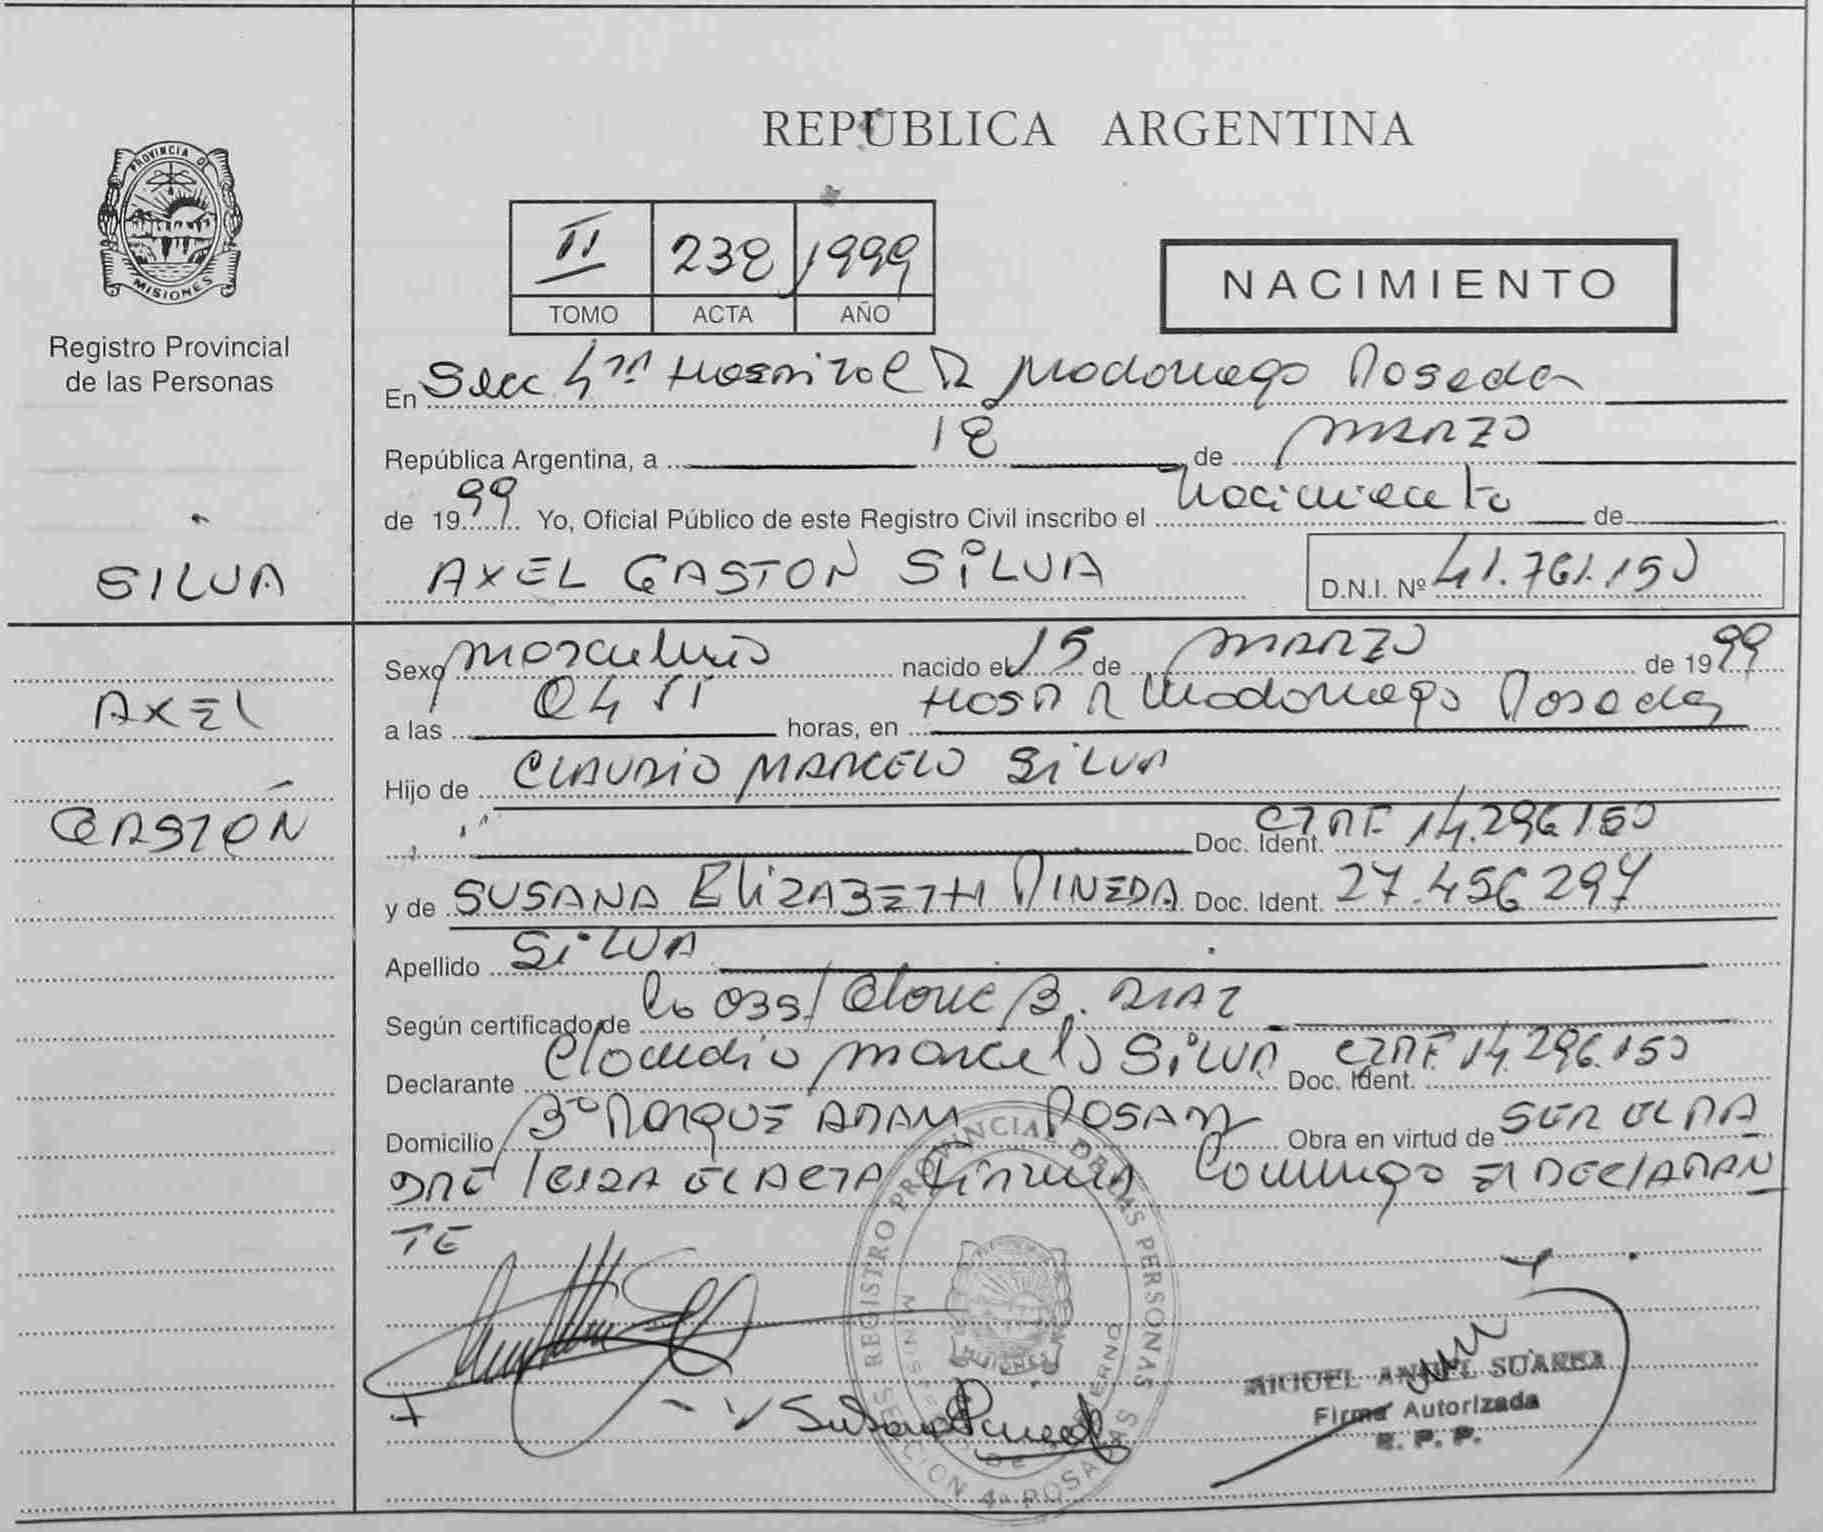 REPUBLICA ARGENTINA
PROVINCIA D
MISIONES
Registro Provincial
de las Personas
II 238 1999
TOMO ACTA AÑO
NACIMIENTO
En Secc 4ta Hospital R Madariaga Posadas
República Argentina, a 18 de MARZO
de 1999 Yo, Oficial Público de este Registro Civil inscribo el Nacimiento de
SILVA
AXEL GASTON SILVA D.N.I. Nº 41.761.150
AXEL
GASTÓN
Sexo Masculino nacido el 15 de MARZO de 1999
a las 04 horas, en Hosp R Madariaga Posadas
Hijo de CLAUDIO MARCELO SILVA
Doc. Ident. 14.296.150
y de SUSANA ELIZABETH PINEDA Doc. Ident. 27.456.297
Apellido SILVA
Según certificado de B. DIAZ
Declarante Claudio Marcelo SILVA Doc. Ident. 14.296.150
Domicilio Bº PARQUE ADAM POSADAS Obra en virtud de SER EL PA
DRE EL ACTA Conmigo El DECLARAN
TE
REGISTRO PROVINCIAL DE LAS PERSONAS
SECCION 4ª POSADAS
Susana Pineda
MIGUEL ANGEL SUAREZ
Firma Autorizada
R. P. P.